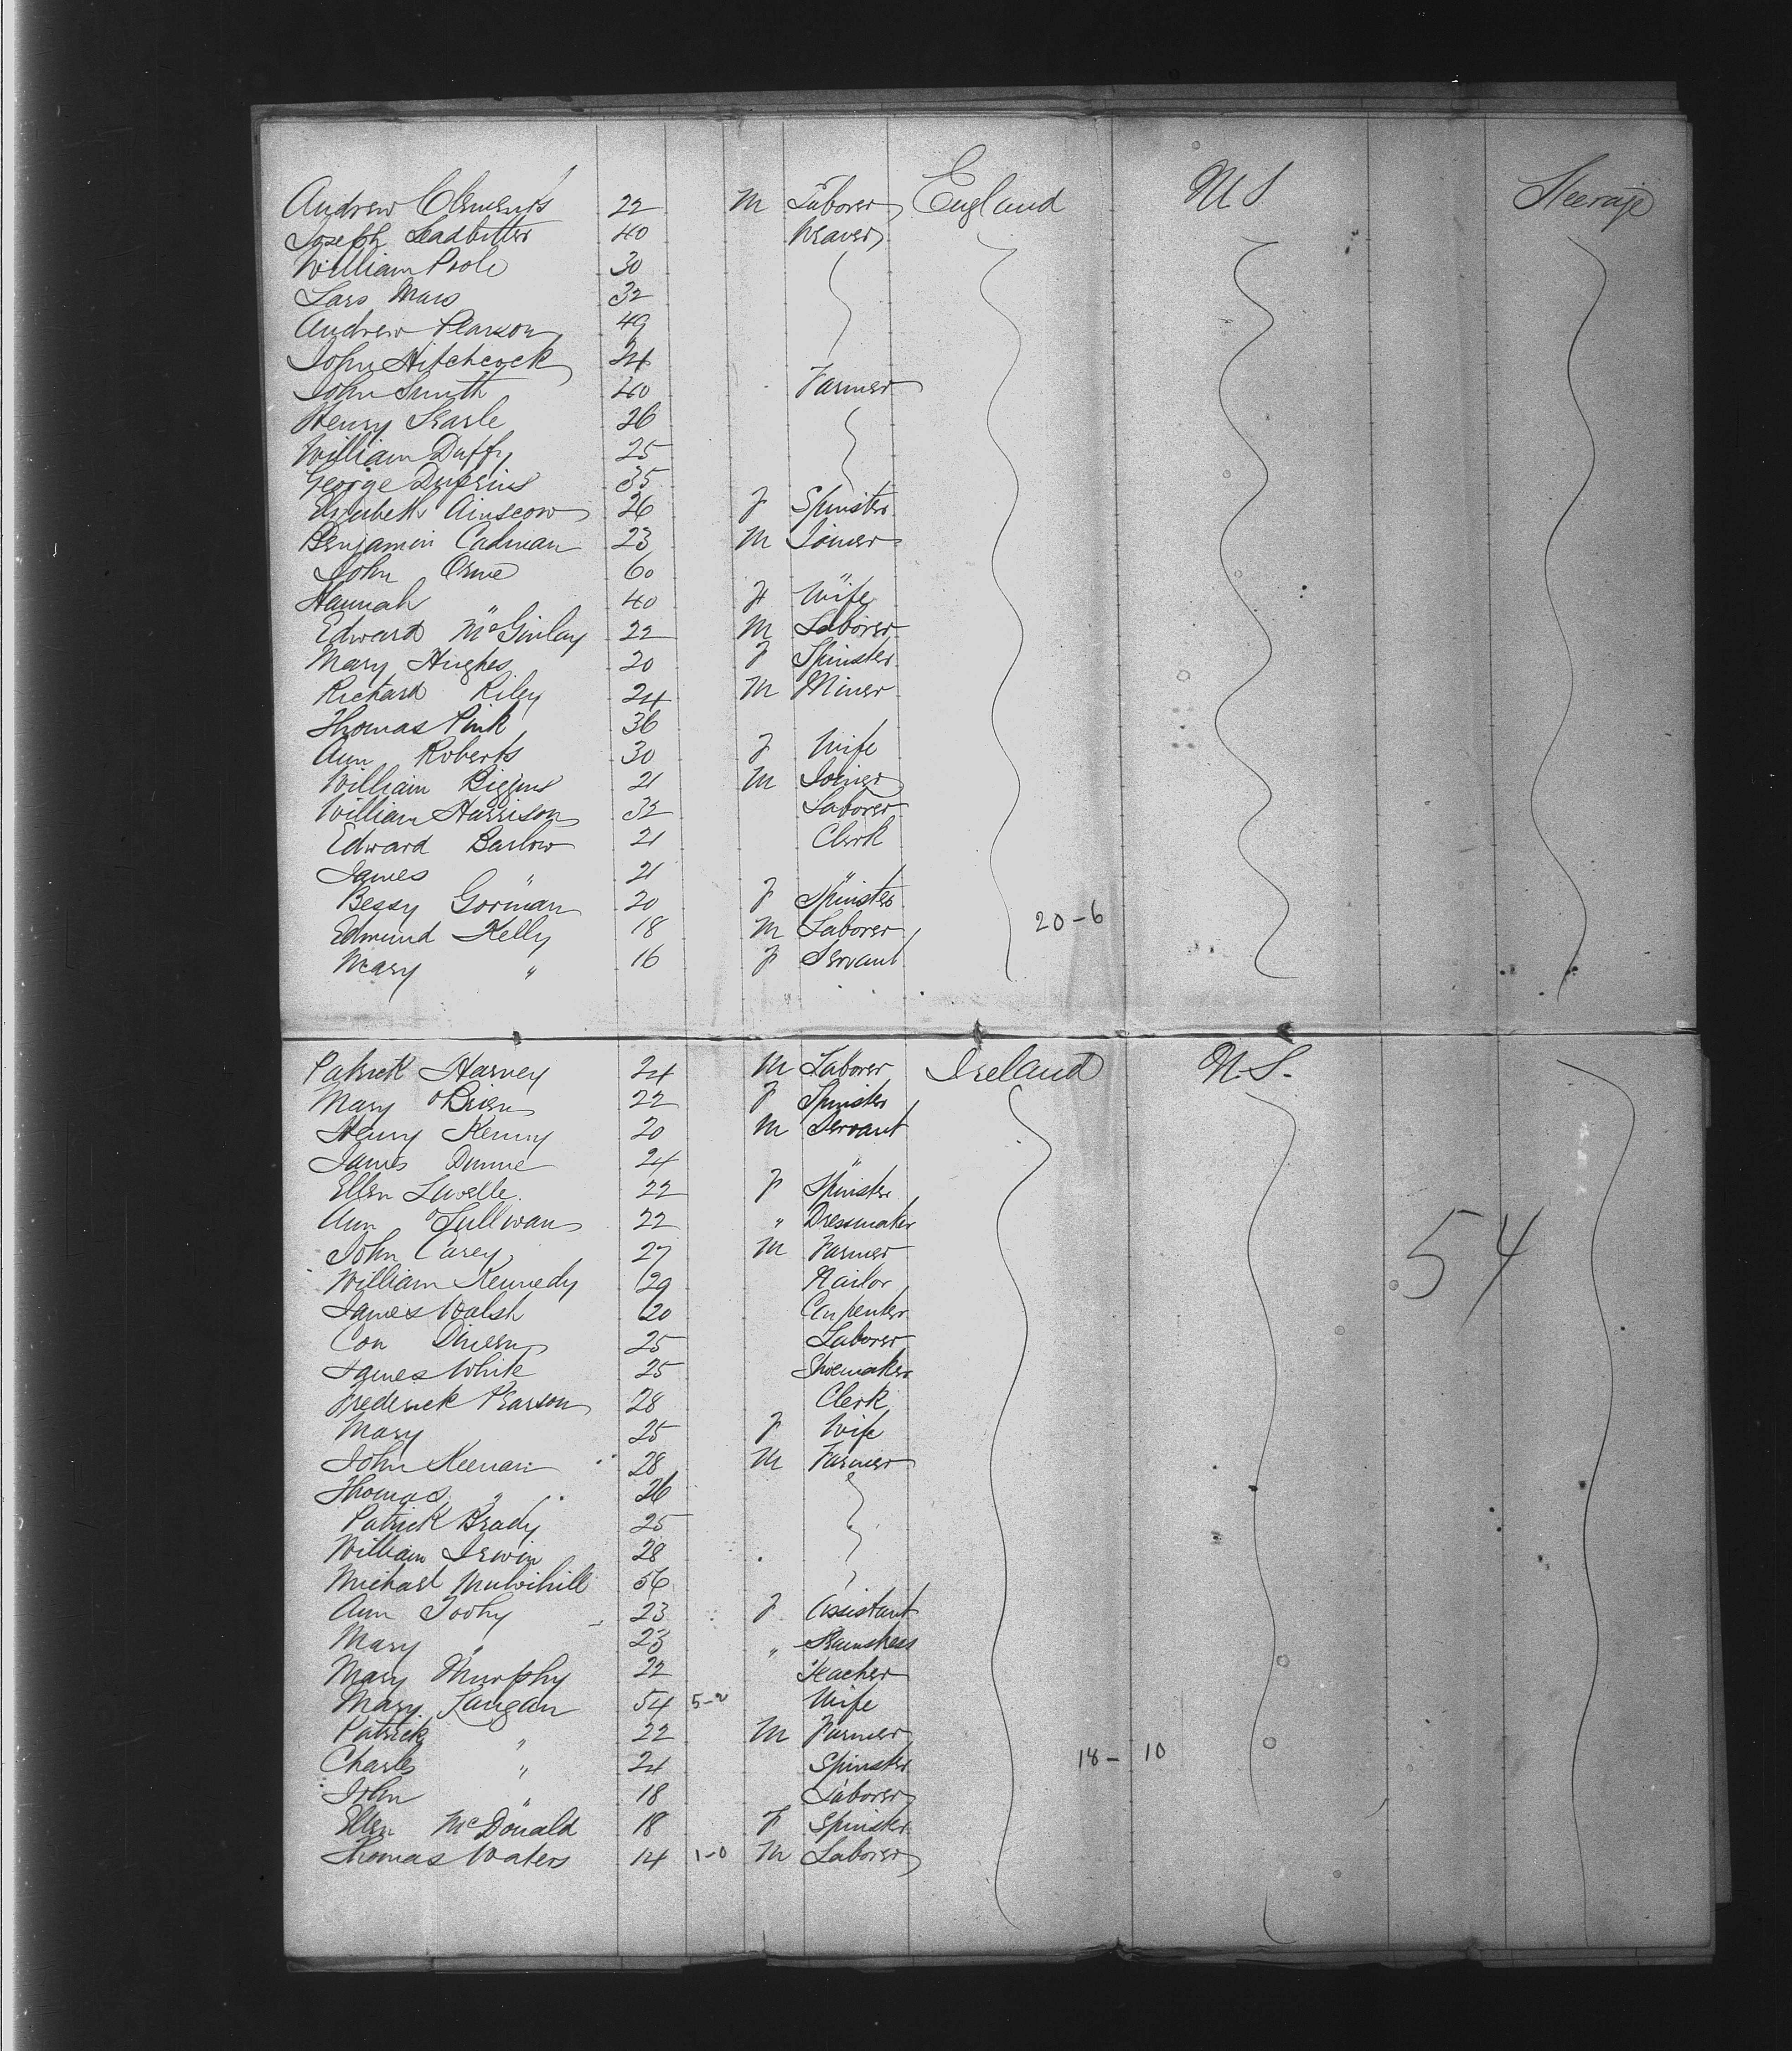 Andrew Clements 22 M Laborer England U S Steerage
Joseph Leadbitter 40 Weaver
William Poole 30
Lars Mars 32
Andrew Pearson 49
John Hitchcock 24
John Smith 40 Farmer
Henry Searle 26
William Duffy 25
George 35
Elizabeth Ainscow 26 F Spinster
Benjamin Cadman 23 M Joiner
John Orme 60 "
Hannah " 40 F Wife
Edward McGinlay 22 M Laborer
Mary Hughes 20 F Spinster
Richard Riley 24 M Miner
Thomas Pink 36
Ann Roberts 30 F Wife
William Biggins 21 M Joiner
William Harrison 32 Laborer
Edward Barlow 21 Clerk
James " 21 "
Bessy Gorman 20 F Spinster
Edmund Kelly 18 M Laborer 20-6
Mary " 16 F Servant
Patrick Harvey 24 M Laborer Ireland U.S.
Mary O'Brien 22 F Spinster
Henry Kenny 20 M Servant
James Dunne 24 "
Ellen Lavelle 22 F Spinster
Ann O'Sullivan 22 " Dressmaker
John Carey 27 M Farmer
William Kennedy 29 Nailor 54
James Walsh 20 Carpenter
Con Dineen 25 Laborer
James White 25 Shoemaker
Frederick Pearson 28 Clerk
Mary 25 F Wife
John Keenan 28 M Farmer
Thomas " 26
Patrick Brady 25
William Irwin 28
Michael Mulvihill 56
Ann Toohy 23 F Assistant
Mary " 23 " Seamstress
Mary Murphy 22 Teacher
Mary Langan 54 5-2 Wife
Patrick " 22 M Farmer
Charles " 24 Spinster 18-10
John " 18 Laborer
Ellen McDonald 18 F Spinster
Thomas Waters 14 1-0 M Laborer